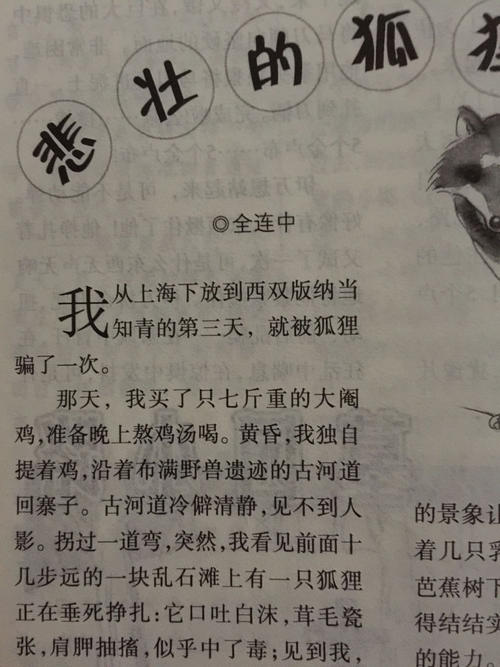 悲壮的狐狸
◎全连中
我从上海下放到西双版纳当
知青的第三天，就被狐狸
骗了一次。
那天，我买了只七斤重的大阉
鸡，准备晚上熬鸡汤喝。黄昏，我独自
提着鸡，沿着布满野兽遗迹的古河道
回寨子。古河道冷僻清静，见不到人
影。拐过一道弯，突然，我看见前面十
几步远的一块乱石滩上有一只狐狸
正在垂死挣扎：它口吐白沫，茸毛瓷
张，肩胛抽搐，似乎中了毒；见到我，
的景象让
着几只乳
芭蕉树下
得结结实
的能力